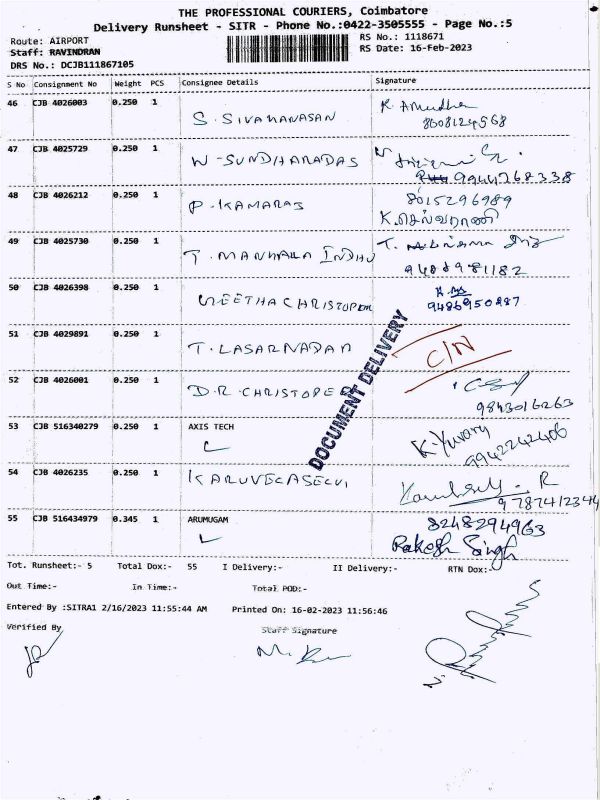 THE PROFESSIONAL COURIERS, Coimbatore
Delivery Runsheet - SITR - Phone No.:0422-3505555 - Page No.:5
Route: AIRPORT
RS No.: 1118671
Staff: RAVINDRAN
RS Date: 16-Feb-2023
DRS No.: DCJB111867105
S No Consignment No Weight PCS Consignee Details Signature
46 CJB 4026003 0.250 1 S. SIVAMANASAN R. Amudha
8608124568
47 CJB 4025729 0.250 1 N-SUNDHARADAS
9944768338
48 CJB 4026212 0.250 1 P. KAMARAJ 8015296989
K.செல்வராணி
49 CJB 4025730 0.250 1 T. MANHALA INDHU T.
9408981182
50 CJB 4026398 0.250 1 GEETHA CHRISTOPER
9486950887
51 CJB 4029891 0.250 1 T. LASARNADAN C/N
DOCUMENT DELIVERY
52 CJB 4026001 0.250 1 D.R. CHRISTOPER
9843016263
53 CJB 516340279 0.250 1 AXIS TECH K. Yuvaraj
9942242406
54 CJB 4026235 0.250 1 KARUVELASELVI
9787412344
55 CJB 516434979 0.345 1 ARUMUGAM 8248294963
Rakesh Singh
Tot. Runsheet:- 5 Total Dox:- 55 I Delivery:- II Delivery:- RTN Dox:-
Out Time:- In Time:- Total POD:-
Entered By :SITRA1 2/16/2023 11:55:44 AM Printed On: 16-02-2023 11:56:46
Verified By Staff Signature